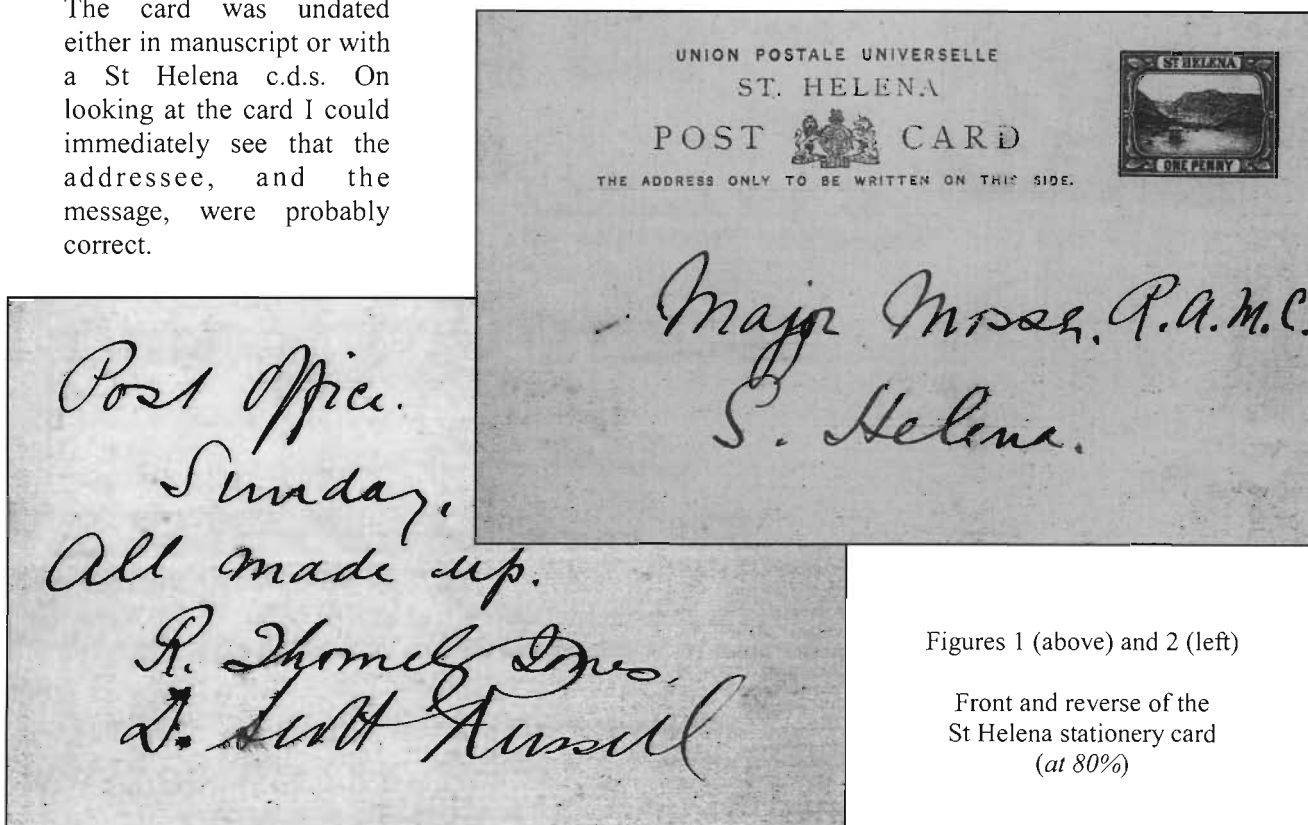 The card was undated
either in manuscript or with
a St Helena c.d.s. On
looking at the card I could
immediately see that the
addressee, and the
message, were probably
correct.
UNION POSTALE UNIVERSELLE
ST. HELENA
POST CARD
THE ADDRESS ONLY TO BE WRITTEN ON THIS SIDE.
ST HELENA
ONE PENNY
Major Mosse, R.A.M.C.
S. Helena.
Post Office.
Sunday,
All made up.
R. Jones.
D. Scott Russell
Figures 1 (above) and 2 (left)
Front and reverse of the
St Helena stationery card
(at 80%)